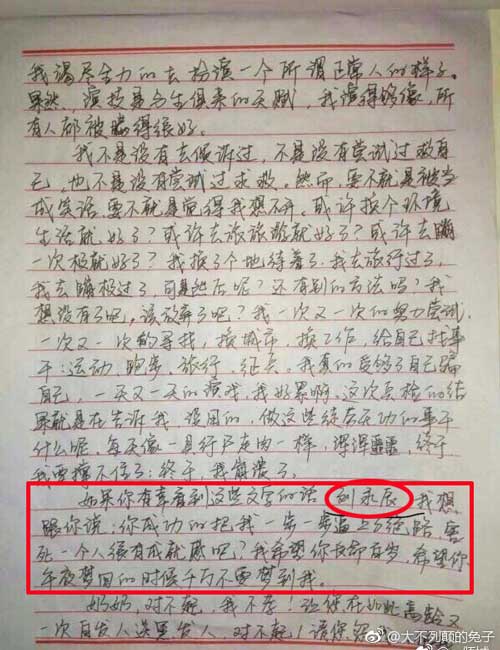 我竭尽全力的去扮演一个所谓正常人的样子。
果然，演技是与生俱来的天赋，我演得够像，所
有人都被骗得很好。
我不是没有去倾诉过，不是没有尝试过救自
己，也不是没有尝试过求救。然而，要不就是被当
成笑话，要不就是觉得我想不开。或许换个环境
生活就好了？或许去旅旅游就好了？或许去蹦
一次极就好了？我换了个地待着了，我去旅行过了，
我去蹦极过了，可是然后呢？还有别的方法吗？我
想没有了吧，该放弃了吧？我一次又一次的努力尝试，
一次又一次的寻找，换城市，换工作，给自己找事
干：运动，跑步，旅行，征兵。我真的受够了自己骗
自己，一天又一天的演戏，我好累啊。这次复检的结
果就是在告诉我，没用的，做这些徒劳无功的事干
什么呢，每天像一具行尸走肉一样，浑浑噩噩，终于
我要撑不住了；终于，我崩溃了。
如果你有幸看到这些文字的话 刘永辰 我想
跟你说：你成功的把我一步一步逼上了绝路，害
死一个人很有成就感吧？我希望你长命百岁，希望你
午夜梦回的时候千万不要梦到我。
奶奶，对不起，我不孝！让你在如此高龄又
一次白发人送黑发人，对不起！请您
@大不列颠的兔子